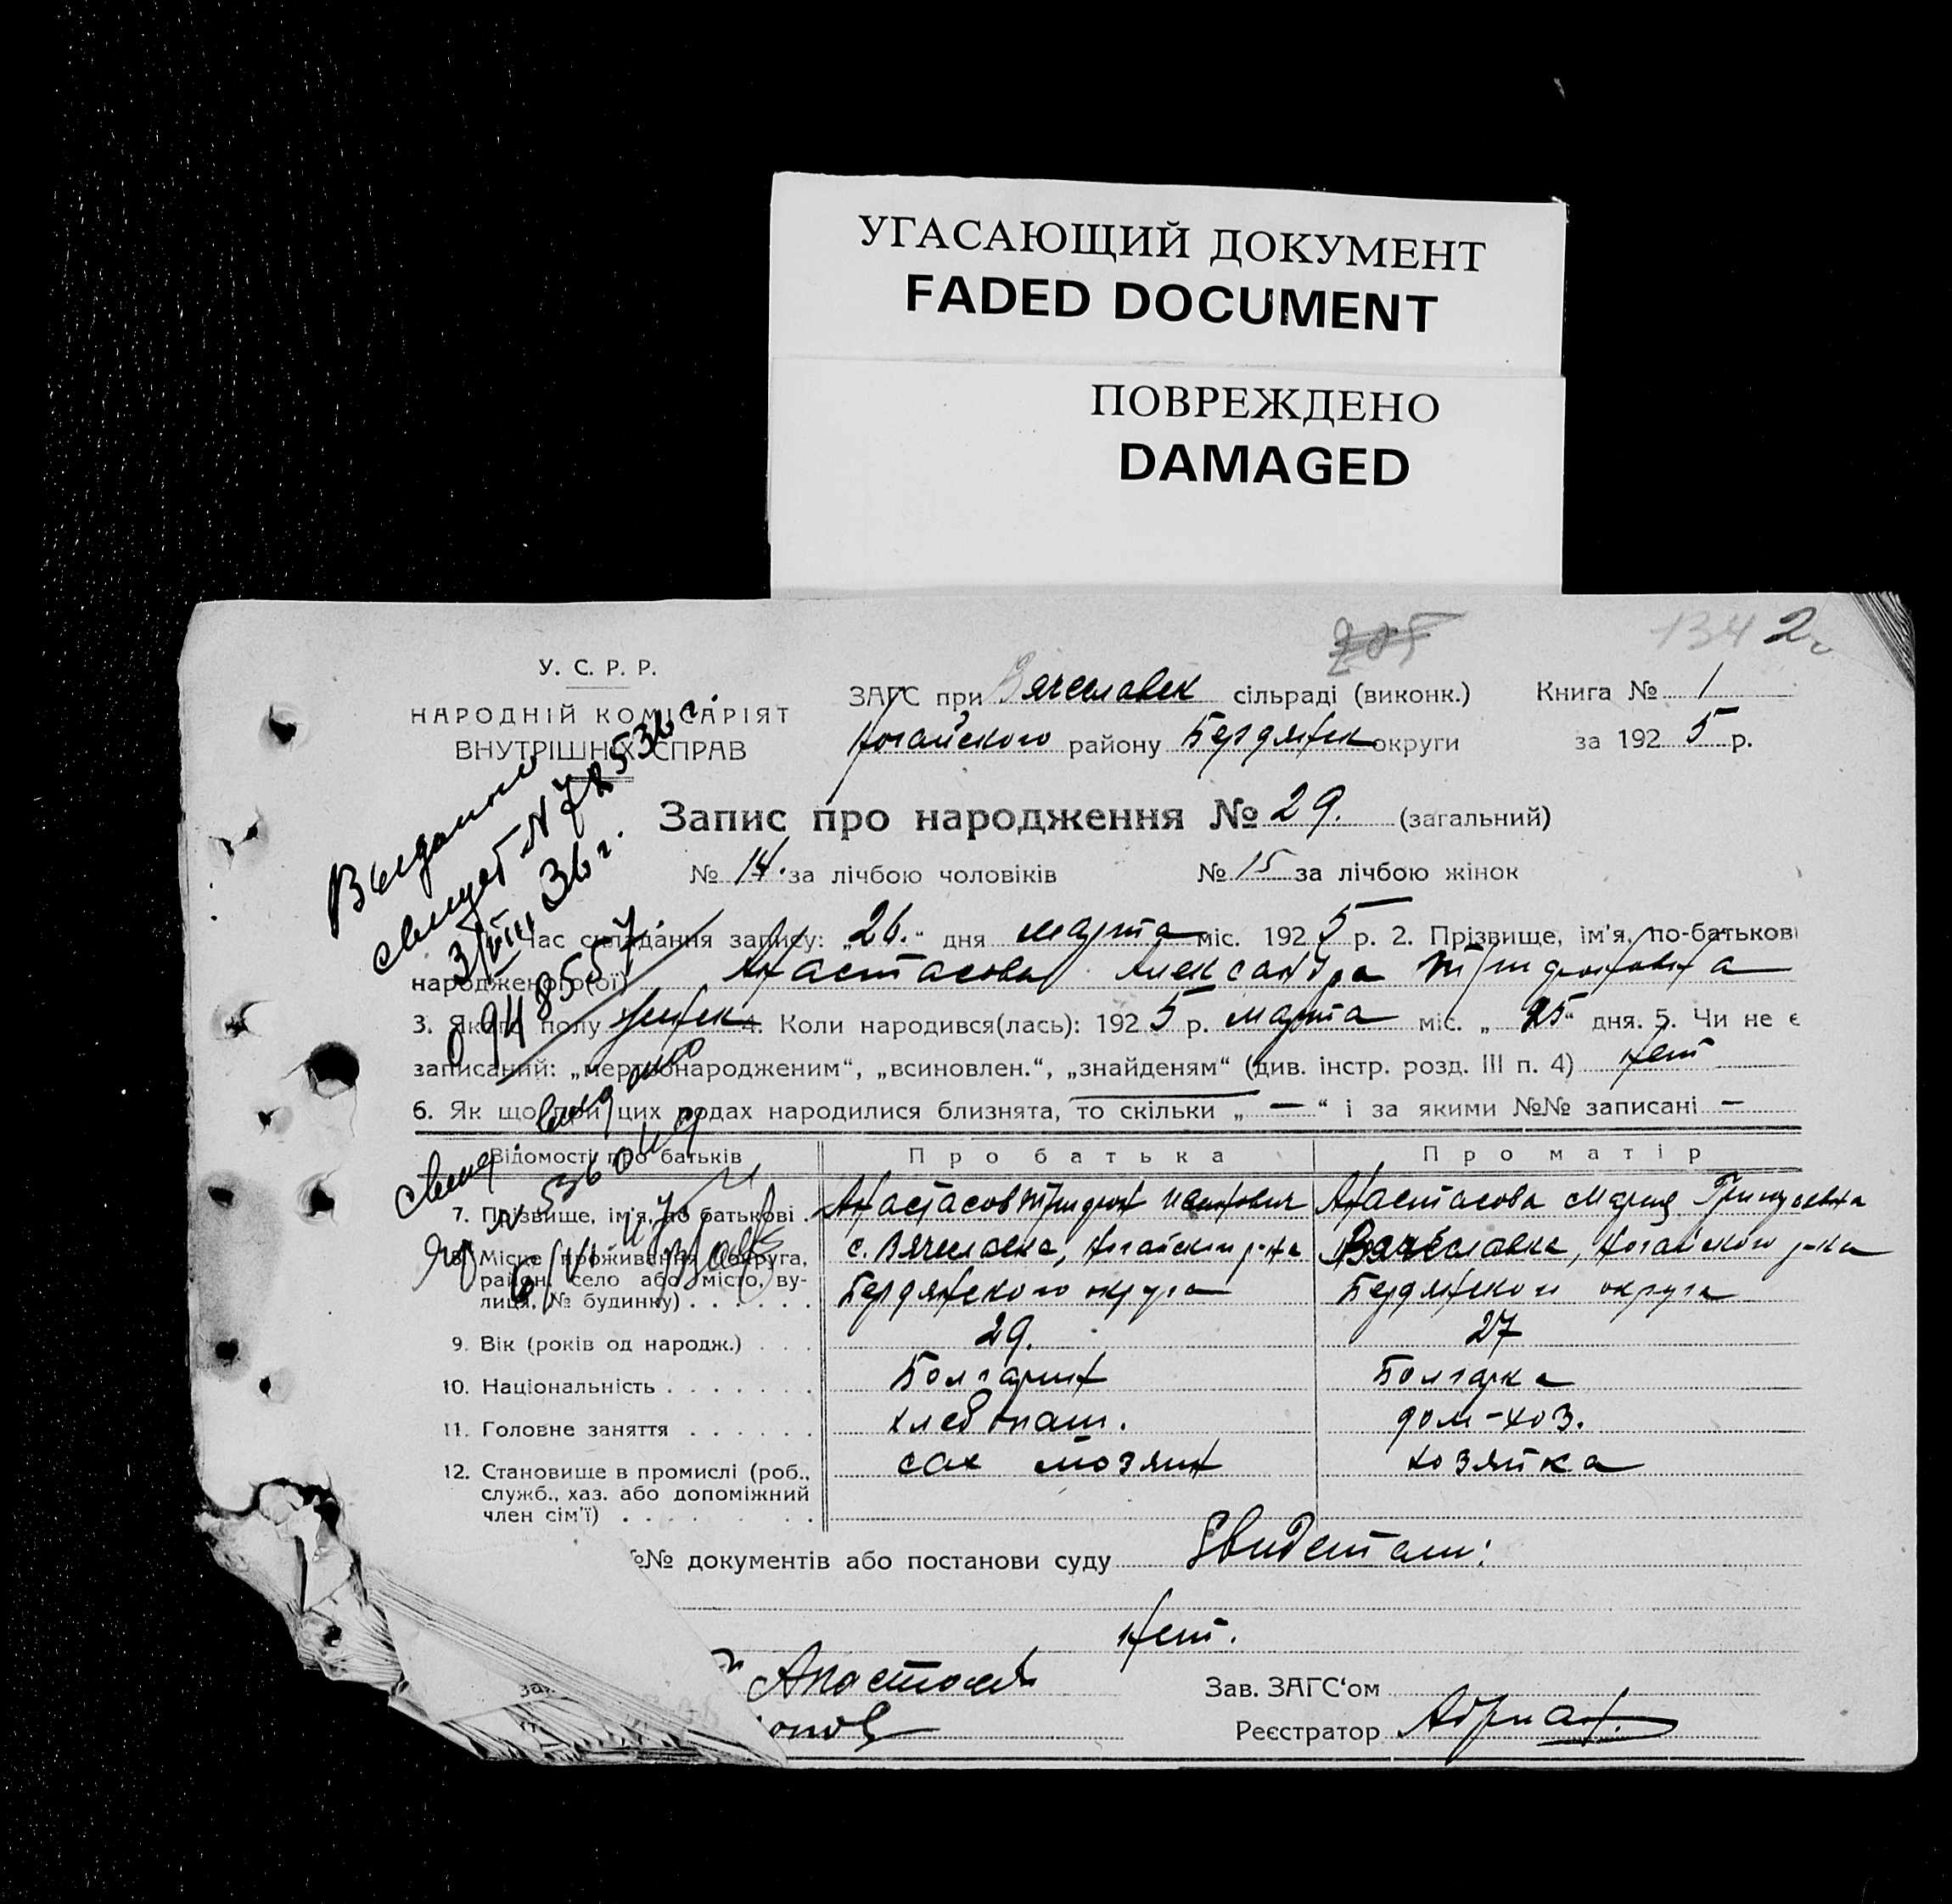 УГАСАЮЩИЙ ДОКУМЕНТ
FADED DOCUMENT
ПОВРЕЖДЕНО
DAMAGED
205
134 2
У. С. Р. Р.
НАРОДНІЙ КОМІСАРІЯТ
ВНУТРІШНІХ СПРАВ
ЗАГС при Вячеславск сільраді (виконк.) Книга № 1
Ногайского району Бердянск округи за 1925 р.
Запис про народження № 29. (загальний)
№ 14. за лічбою чоловіків № 15 за лічбою жінок
Выдано
свидет N 78
3/VIII 36 г.
948557
Час складання запису: „26.“ дня марта міс. 1925 р. 2. Прізвище, ім'я, по-батькові
народженого(ої) Анастасова Александра Трифоновна
3. Якого полу женск 4. Коли народився(лась): 1925 р. марта міс. „25“ дня. 5. Чи не є
записаний: „мертвонародженим“, „всиновлен.“, „знайденям“ (див. інстр. розд. III п. 4) нет
6. Як що при цих родах народилися близнята, то скільки „—“ і за якими №№ записані —
Відомості про батьків Про батька Про матір
7. Прізвище, ім'я, по батькові . Анастасов Трифон Иванович Анастасова Мария Григорьевна
8. Місце проживання (округа, с. Вячеславка, Ногайского р-на Вячеславка, Ногайского р-на
район, село або місто, ву-
лиця, № будинку) . . . . . . Бердянского округа Бердянского округа
9. Вік (років од народж.) . . . 29. 27
10. Національність . . . . . . . Болгарин Болгарка
11. Головне заняття . . . . . . хлебопаш. дом-хоз.
12. Становище в промислі (роб., сам хозяин хозяйка
служб., хаз. або допоміжний
член сім'ї) . . . . . . .
№№ документів або постанови суду
нет.
Зав. ЗАГС'ом
Реєстратор